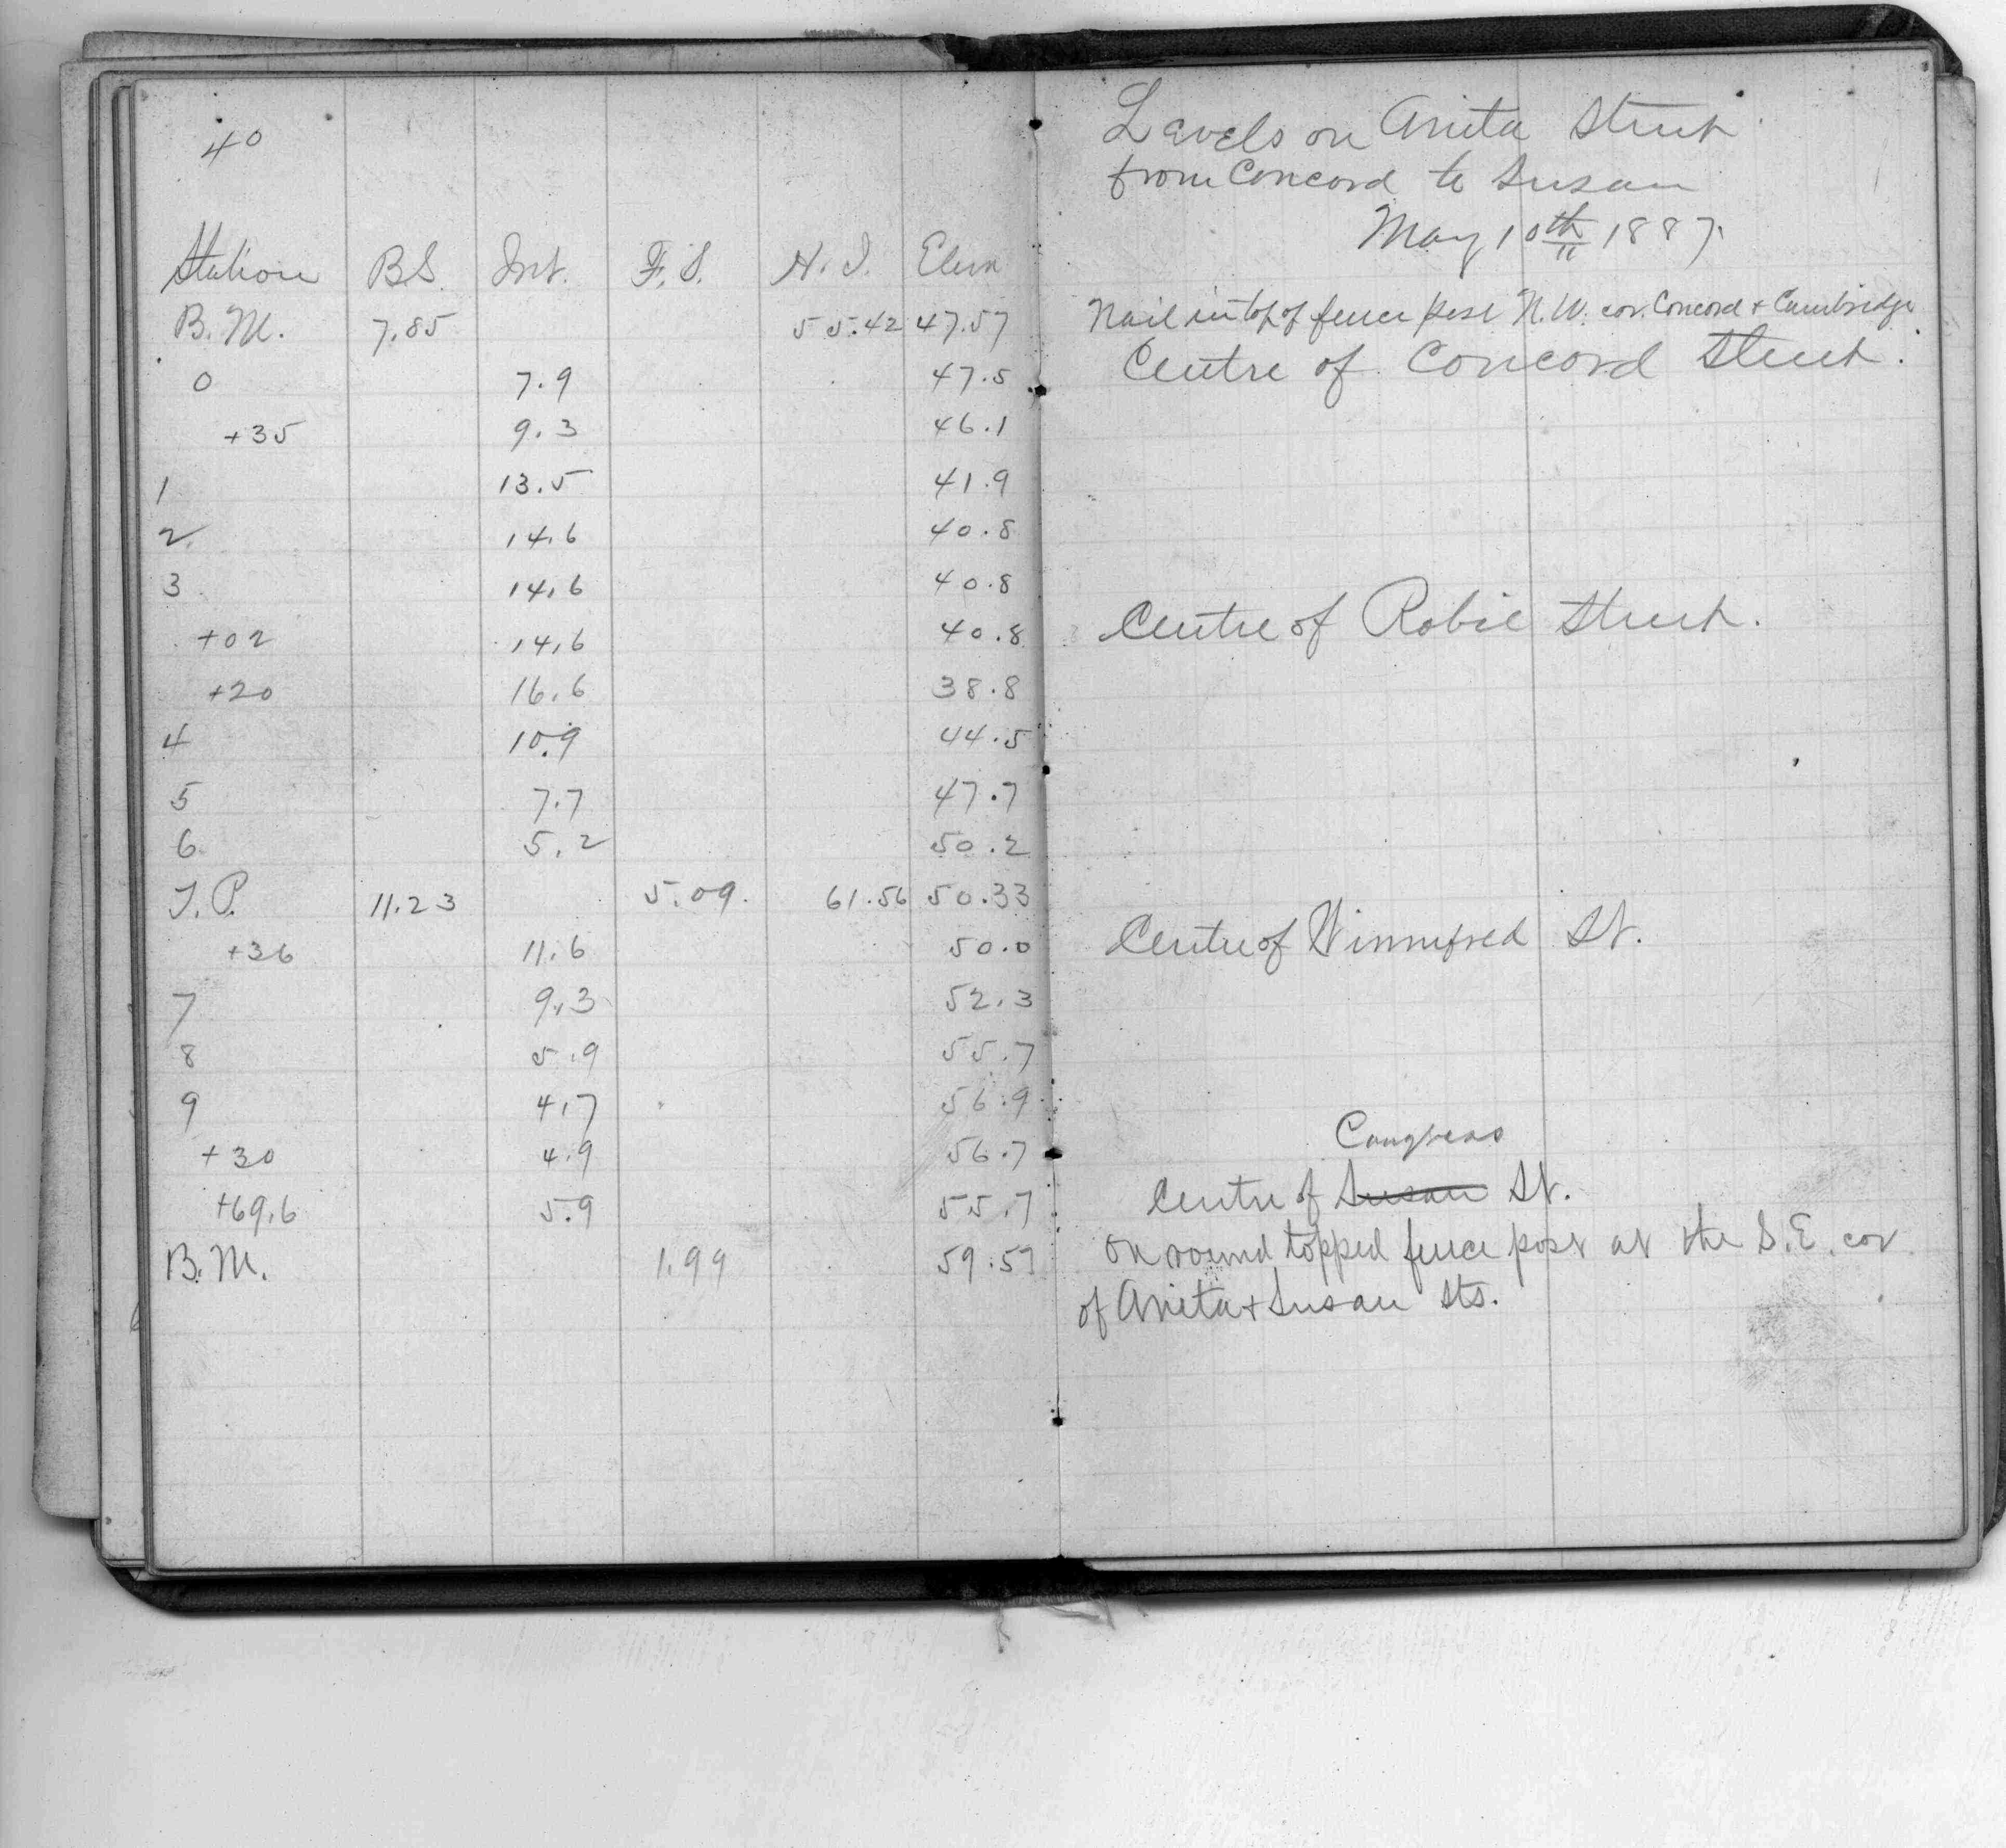 40
Station B.S. Int. F.S. H.I. Elevn
B.M. 7.85 55.42 47.57
0 7.9 47.5
+35 9.3 46.1
1 13.5 41.9
2 14.6 40.8
3 14.6 40.8
+02 14.6 40.8
+20 16.6 38.8
4 10.9 44.5
5 7.7 47.7
6 5.2 50.2
T.P. 11.23 5.09. 61.56 50.33
+36 11.6 50.0
7 9.3 52.3
8 5.9 55.7
9 4.7 56.9
+30 4.9 56.7
+69.6 5.9 55.7
B.M. 1.99 59.57
Levels on Anita Street
from Concord to Susan
May 10th 1887.
Nail in top of fence post N.W. cor. Concord + Cambridge
Centre of Concord Street.
Centre of Robie Street.
Centre of Winnifred St.
Congress
Centre of Susan St.
on round topped fence post at the S.E. cor
of Anita + Susan Sts.